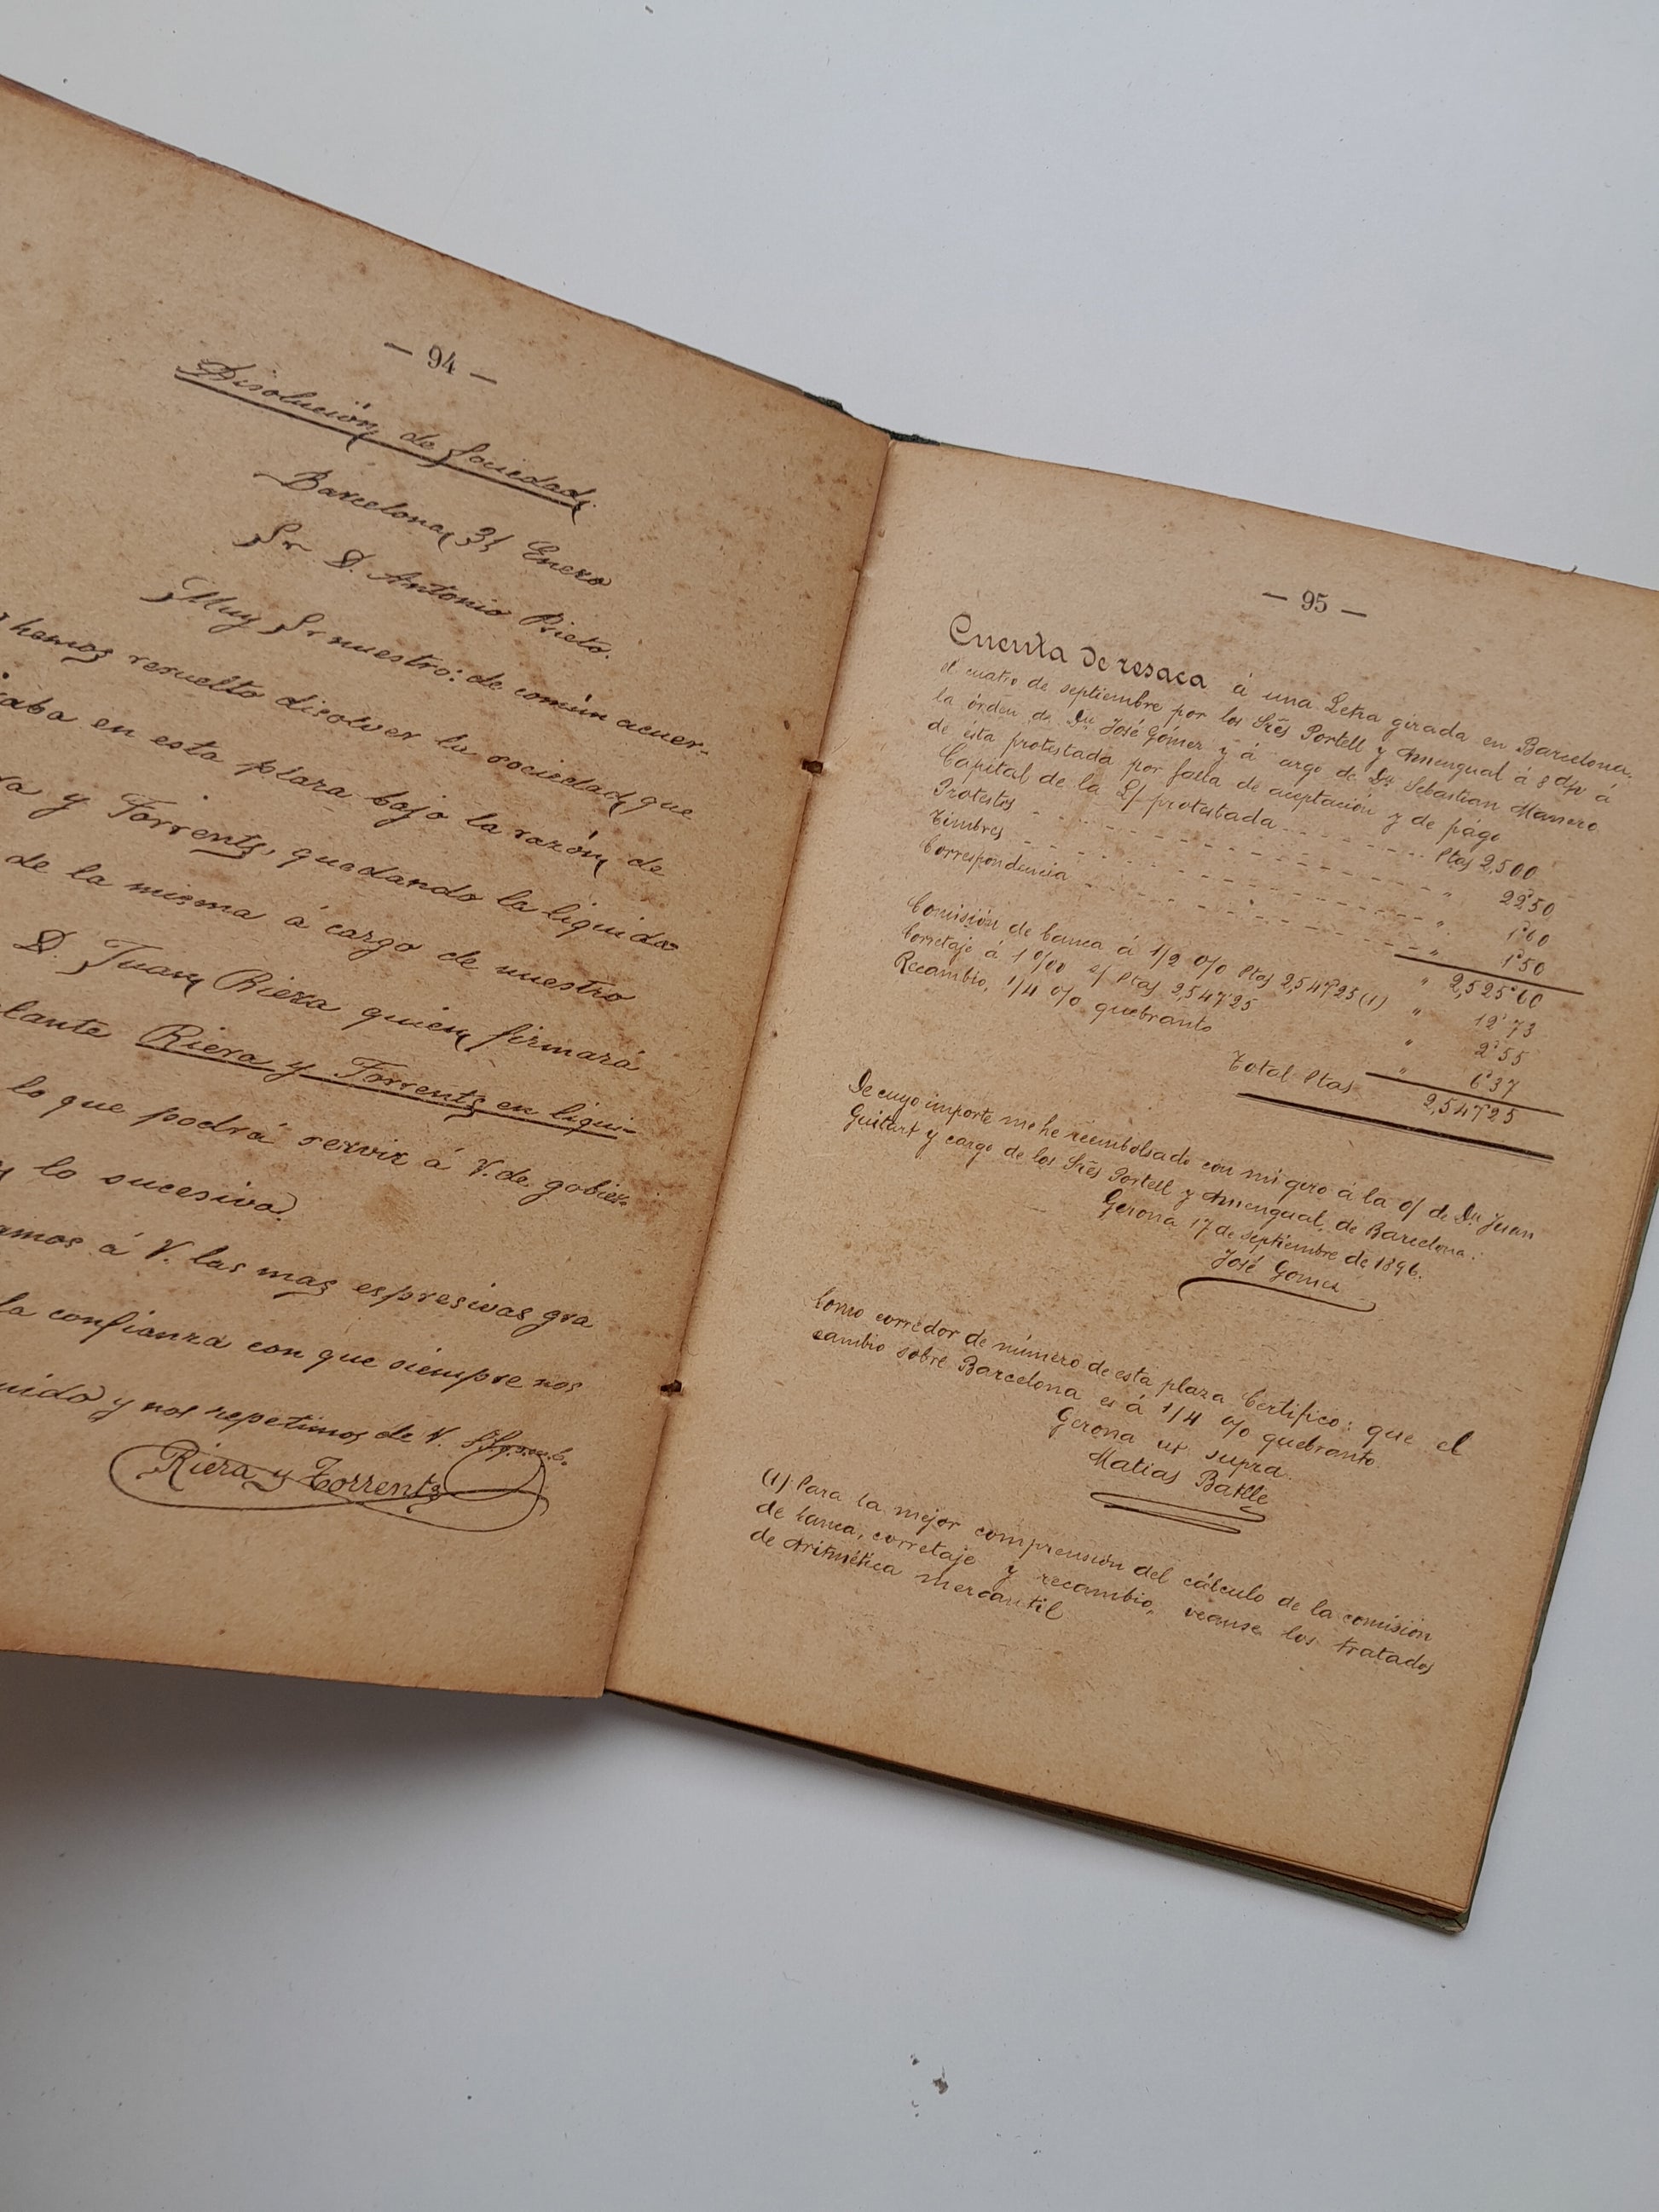 — 94 —
Disolución de Sociedad.
Barcelona 31 Enero
Sr. D. Antonio Prieto.
Muy Sr nuestro: de común acuer-
hemos resuelto disolver la sociedad que
aba en esta plaza bajo la razón de
y Torrents, quedando la liquida-
de la misma á cargo de nuestro
D. Juan Riera quien firmará
lante Riera y Torrents en liqui-
lo que podrá servir á V. de gobier-
lo sucesivo.
amos á V. las mas espresivas gra
la confianza con que siempre nos
nido y nos repetimos de V.
Riera y Torrents
— 95 —
Cuenta de resaca á una Letra girada en Barcelona,
el cuatro de septiembre por los Srês Portell y Amengual á 8 d/v á
la órden de Dn José Gómez y á argo de Dn Sebastian Manero
de ésta protestada por falta de aceptación y de págo
Capital de la L/ protestada Ptas 2,500
Protestos " 22'50
Timbres " 1'60
Correspondencia " 1'50
" 2,525'60
Comisión de banca á 1/2 0/0 Ptas 2,547'25 (1) " 12'73
Corretaje á 1 0/00 s/ Ptas 2,547'25 " 2'55
Recambio, 1/4 0/0 quebranto " 6'37
Total Ptas 2,547'25
De cuyo importe me he reembolsado con mi giro á la o/ de Dn Juan
Guitart y cargo de los Srês Portell y Amengual, de Barcelona.
Gerona 17 de septiembre de 1896.
José Gomez
Como corredor de número de esta plaza Certifico: que el
cambio sobre Barcelona es á 1/4 0/0 quebranto.
Gerona ut supra.
Matias Batlle
(1) Para la mejor comprensión del cálculo de la comisión
de banca, corretaje y recambio, veanse los tratados
de Aritmética mercantil